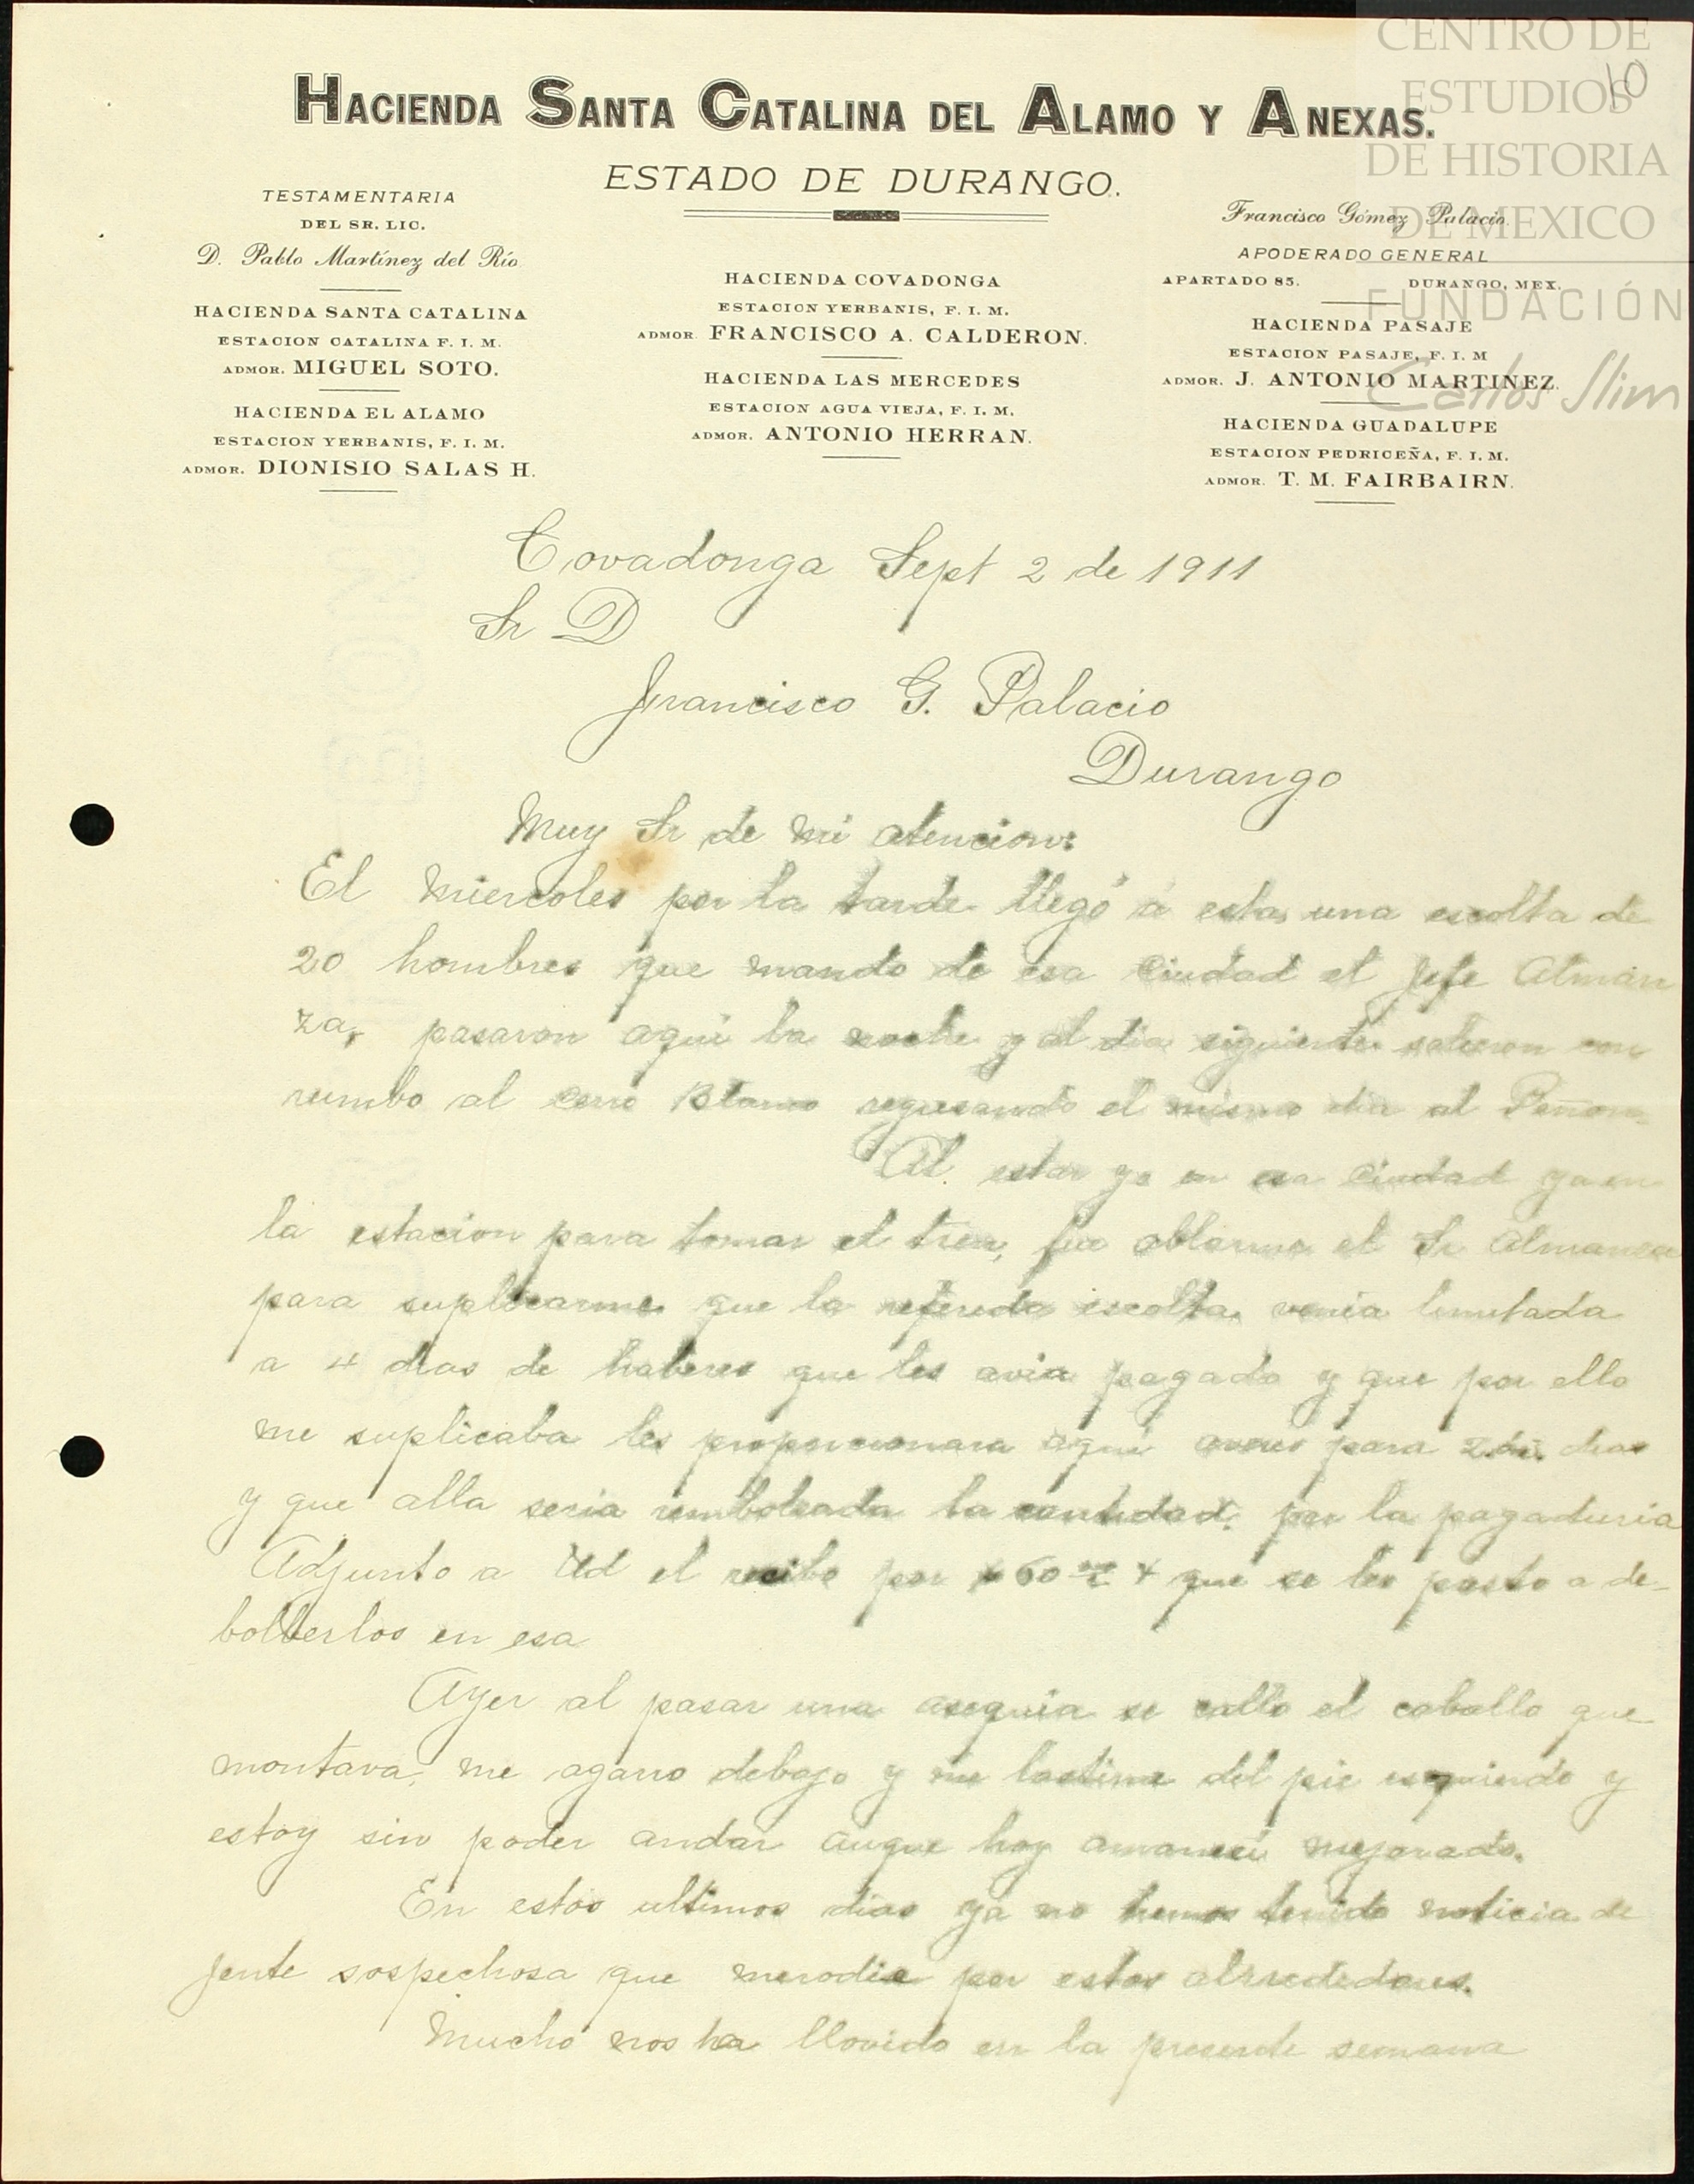 CENTRO DE
ESTUDIOS
DE HISTORIA
DE MEXICO
FUNDACIÓN
Carlos Slim
10
HACIENDA SANTA CATALINA DEL ALAMO Y ANEXAS.
ESTADO DE DURANGO.
TESTAMENTARIA
DEL SR. LIC.
D. Pablo Martínez del Río
HACIENDA SANTA CATALINA
ESTACION CATALINA F. I. M.
ADMOR. MIGUEL SOTO.
HACIENDA EL ALAMO
ESTACION YERBANIS, F. I. M.
ADMOR. DIONISIO SALAS H.
HACIENDA COVADONGA
ESTACION YERBANIS, F. I. M.
ADMOR. FRANCISCO A. CALDERON.
HACIENDA LAS MERCEDES
ESTACION AGUA VIEJA, F. I. M.
ADMOR. ANTONIO HERRAN.
Francisco Gómez Palacio.
APODERADO GENERAL
APARTADO 85. DURANGO, MEX.
HACIENDA PASAJE
ESTACION PASAJE, F. I. M
ADMOR. J. ANTONIO MARTINEZ.
HACIENDA GUADALUPE
ESTACION PEDRICEÑA, F. I. M.
ADMOR. T. M. FAIRBAIRN.
Covadonga Sept 2 de 1911
Sr D
Francisco G. Palacio
Durango
Muy Sr de mi atencion:
El miercoles por la tarde llegó á esta, una escolta de
20 hombres que mando de esa Ciudad el Jefe Alman
za, pasaron aquí la noche y al dia siguiente salieron con
rumbo al cerro Blanco regresando el mismo dia al Peñon.
Al estar yo en esa Ciudad ya en
la estacion para tomar el tren, fue ablarme el Sr Almanza
para suplicarme que la referida escolta venia limitada
a 4 dias de haberes que les avia pagado y que por ello
me suplicaba les proporcionara aqui para dias
y que alla seria rembolsada la cantidad, por la pagaduria
Adjunto a Ud el recibo por $60 que se les presto a de-
bolberlos en esa
Ayer al pasar una asequia se callo el caballo que
montava, me agarro debajo y me lastime del pie esquierdo y
estoy sin poder andar auque hoy amaneci mejorado.
En estos ultimos dias ya no hemos tenido noticia de
jente sospechosa que merodie por estos alrrededores.
Mucho nos ha llovido en la presente semana